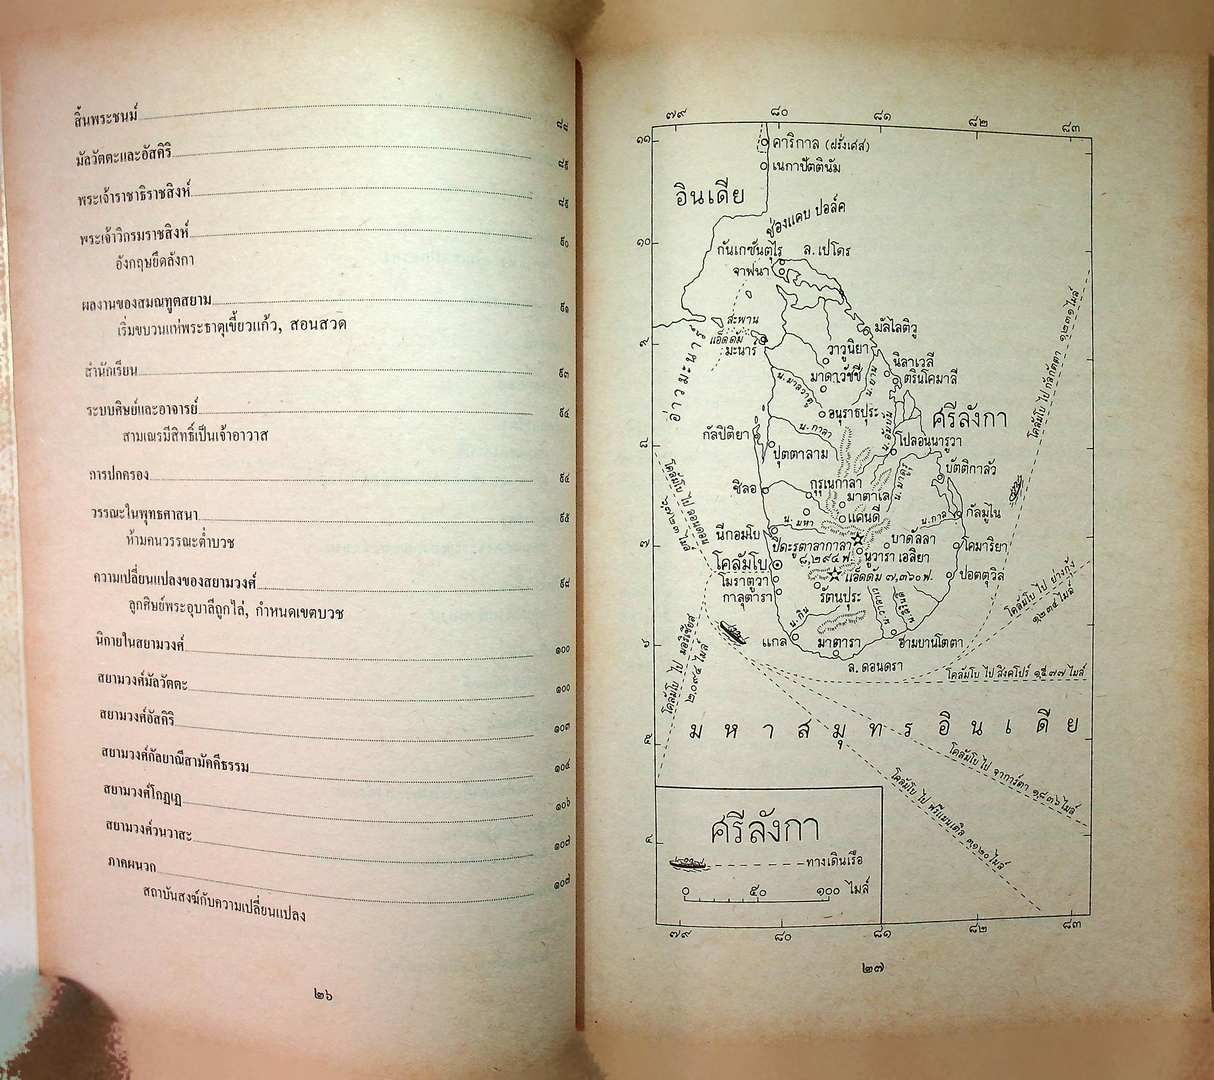 สิ้นพระชนม์ ๘๘
มัลวัตตะและอัสคิริ ๘๙
พระเจ้าราชาธิราชสิงห์ ๘๙
พระเจ้าวิกรมราชสิงห์ ๙๐
อังกฤษยึดลังกา
ผลงานของสมณฑูตสยาม ๙๑
เริ่มขบวนแห่พระธาตุเขี้ยวแก้ว, สอนสวด
สำนักเรียน ๙๓
ระบบศิษย์และอาจารย์ ๙๔
สามเณรมีสิทธิ์เป็นเจ้าอาวาส
การปกครอง ๙๔
วรรณะในพุทธศาสนา ๙๕
ห้ามคนวรรณะต่ำบวช
ความเปลี่ยนแปลงของสยามวงศ์ ๙๘
ลูกศิษย์พระอุบาลีถูกไล่, กำหนดเขตบวช
นิกายในสยามวงศ์ ๑๐๐
สยามวงศ์มัลวัตตะ ๑๐๐
สยามวงศ์อัสคิริ ๑๐๓
สยามวงศ์กัลยาณีสามัคคีธรรม ๑๐๔
สยามวงศ์โกฏเฏ ๑๐๖
สยามวงศ์วนวาสะ ๑๐๗
ภาคผนวก ๑๐๗
สถาบันสงฆ์กับความเปลี่ยนแปลง
๒๖
๗๙ ๘๐ ๘๑ ๘๒ ๘๓
๑๑
คาริกาล (ฝรั่งเศส)
เนกาปัตตินัม
อินเดีย
ช่องแคบ ปอล์ค
๑๐
กันเกซันตุไร
ล. เปโดร
จาฟนา
สะพาน
แอ็ดดัม
มัลไลติวู
๙
มะนาร์
อ่าวมะนาร์
วาวูนิยา
นิลาเวลี
มาดาวัชชี
น. ยาน
ตรินโคมาลี
น. มาลวาตุ
อนุราธปุระ
ศรีลังกา
น. กาลา
กัลปิติยา
๘
ปุตตาลาม
โปลอนนารูวา
บัตติกาลัว
ชิลอ
กุรุเนกาลา
มาตาเล
น. มาดูรู
แคนดี
น. มหา
น. กาล
กัลมูไน
นีกอมโบ
๗
ปิดะรูตาลากาลา
๘,๒๙๔ ฟ.
บาดัลลา
โคมาริยา
นูวารา เอลิยา
โคลัมโบ
แอ็ดดัม ๗,๓๖๐ ฟ.
ปอตตูวิล
โมราตูวา
กาลุตารา
รัตนปุระ
น. กิน
๖
แกล
มาตารา
ฮามบานโตตา
ล. ดอนดรา
โคลัมโบ ไป กัลกัตตา ๑๒๓๑ ไมล์
โคลัมโบ ไป ลอนดอน
ไมล์
โคลัมโบ ไป ย่างกุ้ง
๑๒๓๔ ไมล์
โคลัมโบ ไป มอริเชียส
๒,๐๙๔ ไมล์
โคลัมโบ ไป สิงคโปร์ ๑๕๗๗ ไมล์
มหาสมุทรอินเดีย
๕
โคลัมโบ ไป จาการ์ตา ๑,๘๓๖ ไมล์
โคลัมโบ ไป ฟรีแมนเติล ๓๑๒๐ ไมล์
๔
ศรีลังกา
ทางเดินเรือ
๐ ๕๐ ๑๐๐ ไมล์
๗๙ ๘๐ ๘๑ ๘๒ ๘๓
๒๗